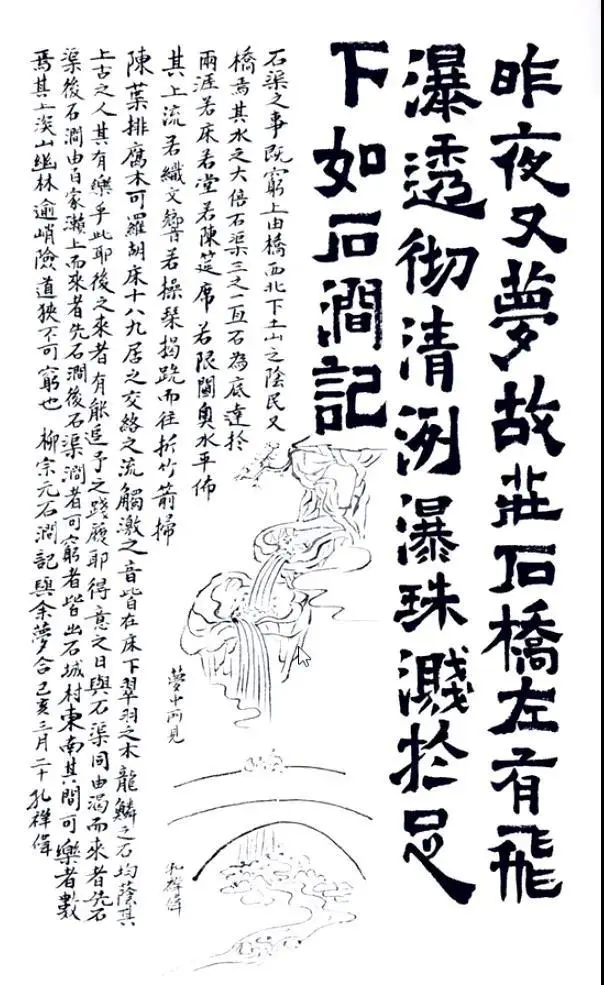 昨夜又夢故莊石橋左有飛
瀑透彻清洌瀑珠濺於足
下如石澗記
石渠之事既窮上由橋西北下土山之陰民又
橋焉其水之大倍石渠三之一亙石為底達於
兩涯若床若堂若陳筵席若限閫奥水平佈
其上流若織文響若操琴揭跣而往折竹箭掃
陳葉排腐木可羅胡床十八九居之交絡之流觸激之音皆在床下翠羽之木龍鱗之石均蔭其
上古之人其有樂乎此耶後之來者有能追予之踐履耶得意之日與石渠同由渴而來者先石
渠後石澗由百家瀨上而來者先石澗後石渠澗者可窮者皆出石城村東南其間可樂者數
焉其上深山幽林逾峭險道狹不可窮也 柳宗元石澗記與余夢合己亥三月二十孔祥偉
夢中所見
孔祥偉